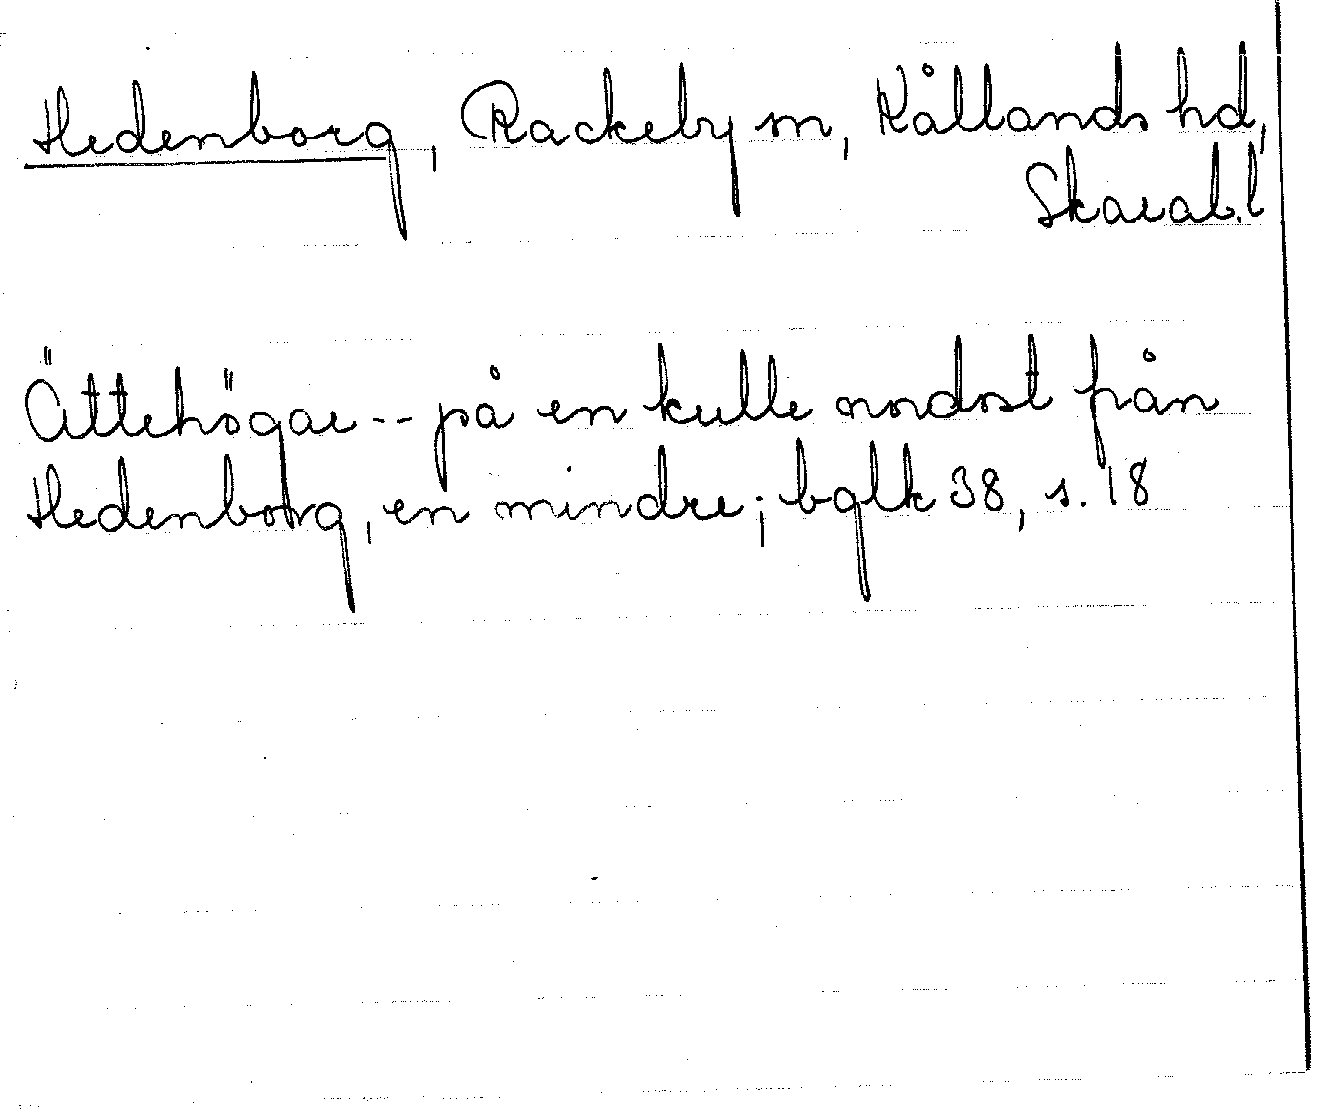 Hedenborg, Rackeby sn, Kållands hd,
Skarab.l
Ättehögar -- på en kulle nordost från
Hedenborg, en mindre; bglk 38, s. 18